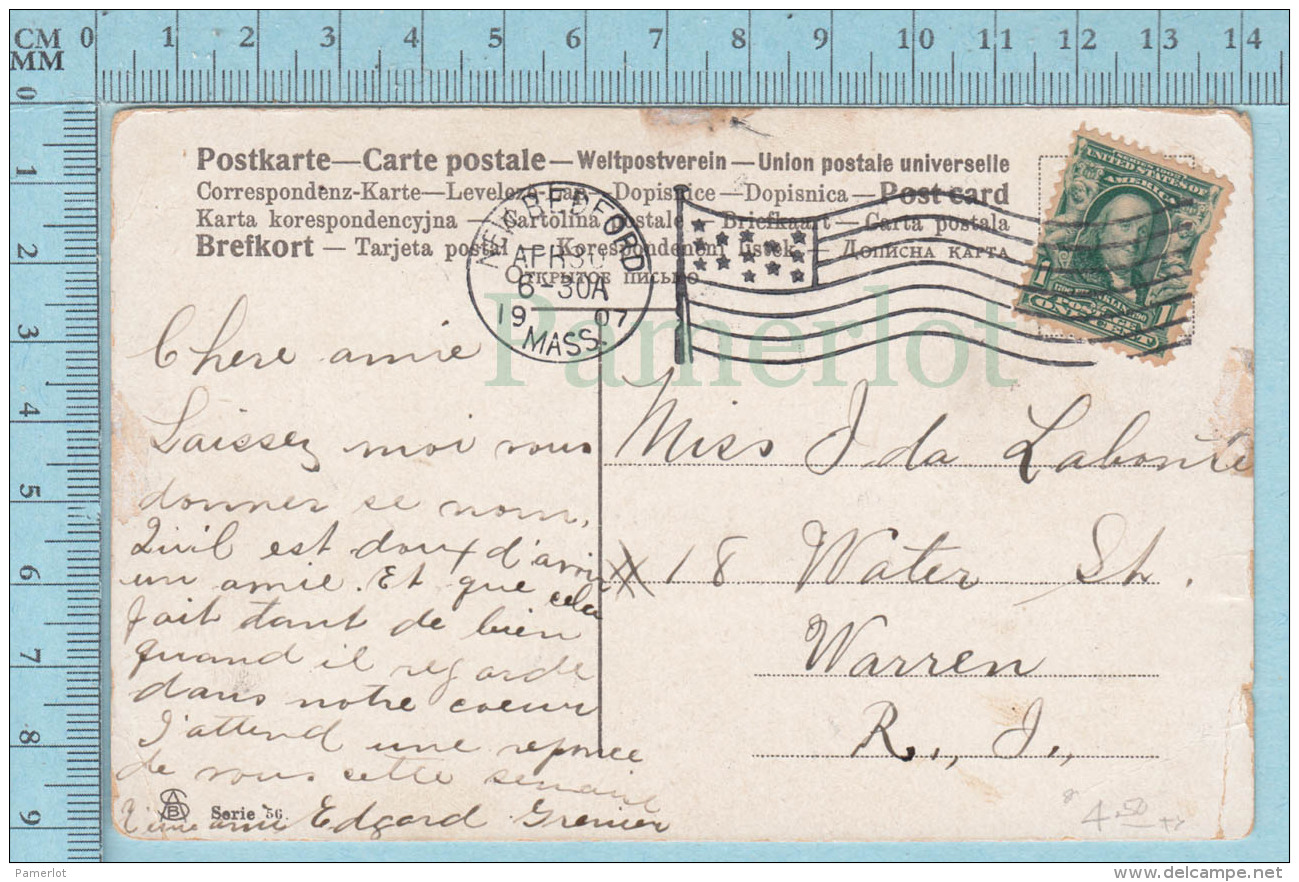 CM 0 1 2 3 4 5 6 7 8 9 10 11 12 13 14
MM
0 1 2 3 4 5 6 7 8 9
Postkarte—Carte postale—Weltpostverein—Union postale universelle
Correspondenz-Karte—Levelező-Lap—Dopisnice—Dopisnica—Post card
Karta korespondencyjna—Cartolina postale—Briefkaart—Carta postala
Brefkort—Tarjeta postal—Korespondencni listek—Дописна карта
Открытое письмо
NEW BEDFORD
APR 30
6-30A
1907
MASS.
UNITED STATES OF
AMERICA
1 FRANKLIN 1
POSTAGE
ONE CENT
Pamerlot
Chere amie
Laissez moi vous
donner se nom,
Quil est doux d'avoir
un amie. Et que cela
fait tant de bien
quand il regarde
dans notre coeur
J'attend une reponce
de vous cette semaine
Edgard Grenier
Miss Ida Labonté
# 18 Water St.
Warren
R., I.,
ASB Serie 56.
4.50
Pamerlot
delcampe.net